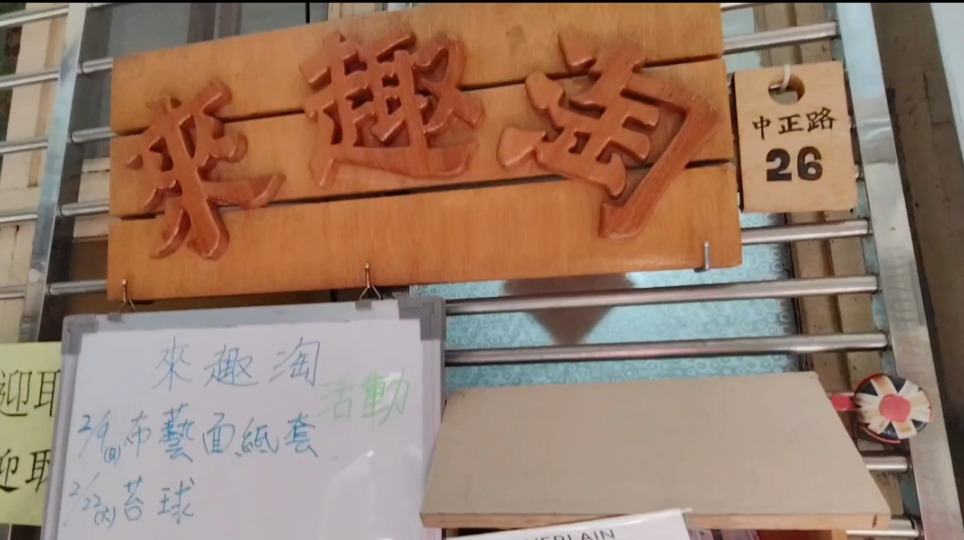 來趣淘
中正路
26
來趣淘
活動
2/9(日)布藝面紙套
2/22(六)苔球
迎取
迎取